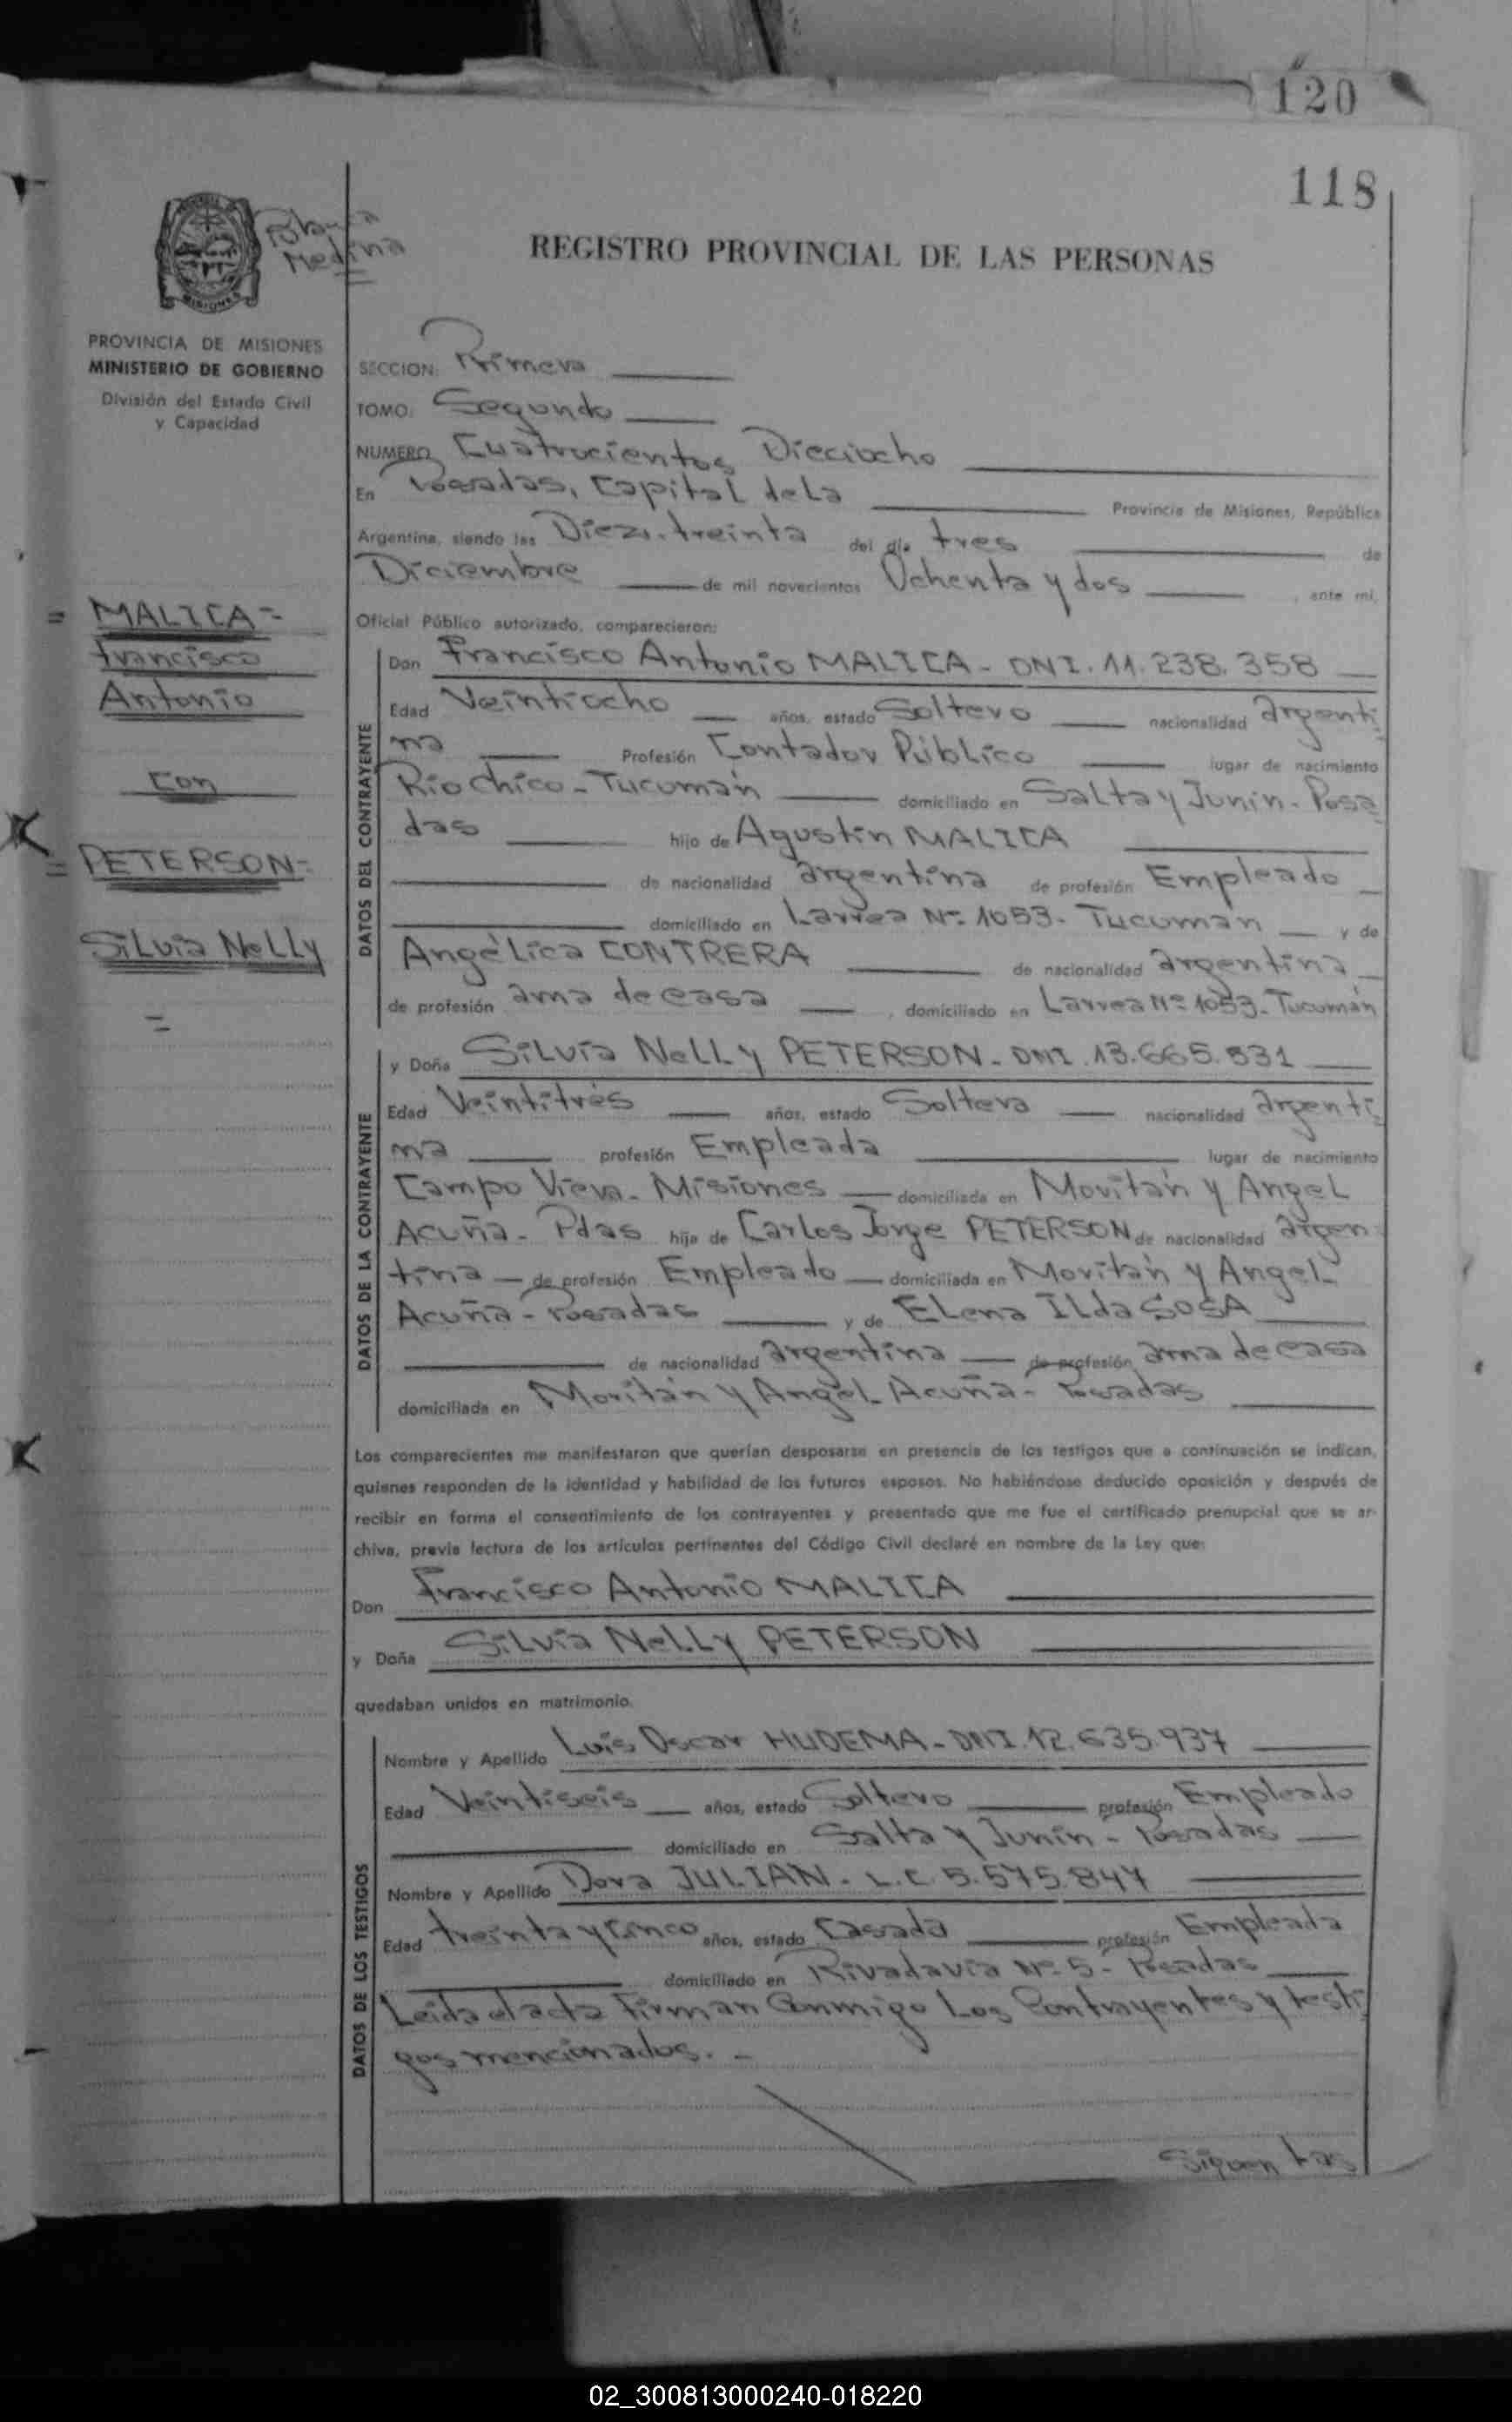 120
118
Medina
REGISTRO PROVINCIAL DE LAS PERSONAS
MISIONES
PROVINCIA DE MISIONES
MINISTERIO DE GOBIERNO
División del Estado Civil
y Capacidad
SECCION: Primera
TOMO: Segundo
NUMERO Cuatrocientos Dieciocho
En Posadas, Capital de La Provincia de Misiones, República
Argentina, siendo las Diez y treinta del día tres de
Diciembre de mil novecientos Ochenta y dos, ante mi,
Oficial Público autorizado, comparecieron:
= MALICA =
Francisco
Antonio
Con
= PETERSON =
Silvia Nelly
=
DATOS DEL CONTRAYENTE
Don Francisco Antonio MALICA - DNI. 11.238.358
Edad Veintiocho años, estado Soltero nacionalidad argenti
na Profesión Contador Público lugar de nacimiento
Rio Chico - Tucumán domiciliado en Salta y Junín - Posa
das hijo de Agustín MALICA
de nacionalidad argentina de profesión Empleado
domiciliado en Larrea Nº 1053 - Tucumán y de
Angélica CONTRERA de nacionalidad argentina
de profesión ama de casa, domiciliado en Larrea Nº 1053 - Tucumán
DATOS DE LA CONTRAYENTE
y Doña Silvia Nelly PETERSON - DNI. 13.665.531
Edad Veintitrés años, estado Soltera nacionalidad argenti
na profesión Empleada lugar de nacimiento
Campo Viera - Misiones domiciliada en Moritán y Angel
Acuña - Pdas hija de Carlos Jorge PETERSON de nacionalidad argen
tina de profesión Empleado domiciliada en Moritán y Angel
Acuña - Posadas y de Elena Ilda SOSA
de nacionalidad argentina de profesión ama de casa
domiciliada en Moritán y Angel Acuña - Posadas
Los comparecientes me manifestaron que querían desposarse en presencia de los testigos que a continuación se indican,
quienes responden de la identidad y habilidad de los futuros esposos. No habiéndose deducido oposición y después de
recibir en forma el consentimiento de los contrayentes y presentado que me fue el certificado prenupcial que se ar-
chiva, previa lectura de los artículos pertinentes del Código Civil declaré en nombre de la Ley que:
Don Francisco Antonio MALICA
y Doña Silvia Nelly PETERSON
quedaban unidos en matrimonio.
DATOS DE LOS TESTIGOS
Nombre y Apellido Luis Oscar HUDEMA - DNI. 12.635.937
Edad Veintiseis años, estado Soltero profesión Empleado
domiciliado en Salta y Junín - Posadas
Nombre y Apellido Dora JULIAN - L.C. 5.575.847
Edad treinta y cinco años, estado Casada profesión Empleada
domiciliado en Rivadavia Nº 5 - Posadas
Leída el acta Firman Conmigo Los Contrayentes y testi
gos mencionados. -
Siguen Las
02_300813000240-018220